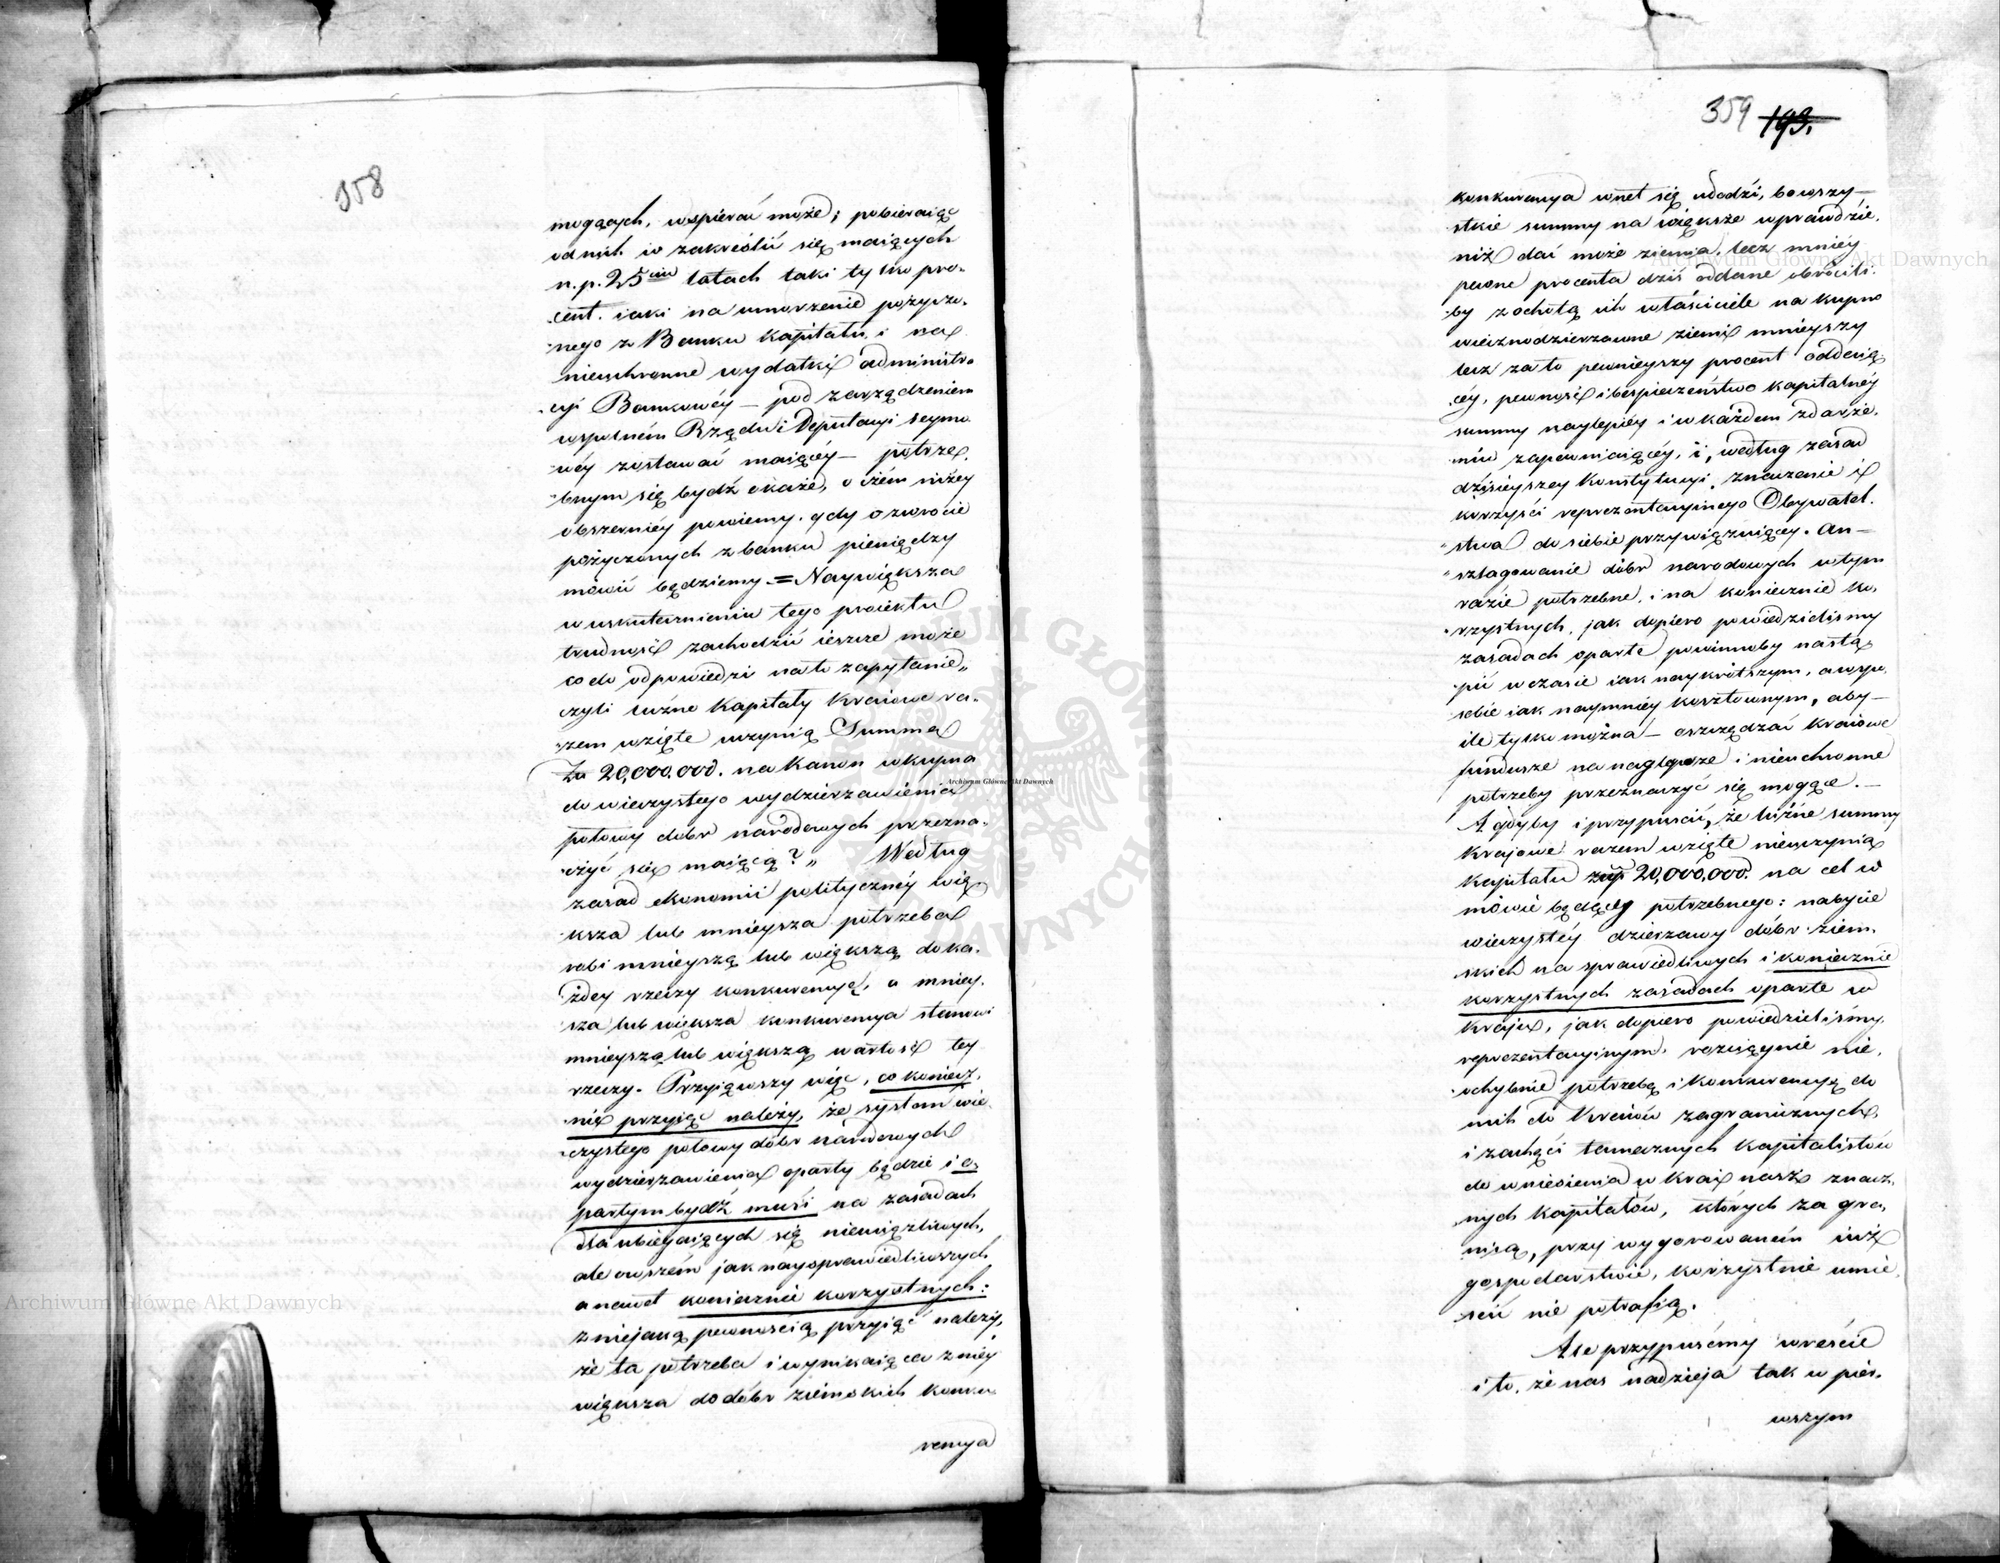 358
mogących, wspierać może; pobieraiąc
od nich w zakreślić się maiących
n.p. 25ciu latach taki tylko pro-
cent. iaki na umorzenie pożyczo-
nego z Banku kapitału, i na
nieuchronne wydatki administra
cyi Bankowéy — pod zarządzeniem
wspolném Rządu i Deputacyi seymo
wéy zostawać maiącéy — potrze
bnym się bydź okaże, o czém niżey
obszerniéy powiemy. gdy o zwrocie
pożyczonych z banku pieniędzy
mówić będziemy = Naywiększa
w uskutecznieniu tego proiektu
trudność zachodzić ieszcze może
co do odpowiedzi na to zapytanie „
czyli luźne kapitały kraiowe ra-
zem wzięte uczynią Summę
Zł 20,000,000. na kanon wkupna
do wieczystego wydzierzawienia
połowy dóbr narodowych przezna-
czyć się maiącą? „ Według
zasad ekonomii politycznéy wię
ksza lub mnieysza potrzeba
robi mnieyszą lub większą do ka-
żdey rzeczy konkurencyą, a mniey-
sza lub większa konkurencya stanowi
mnieyszą lub większą wartość tey
rzeczy. Przyiąwszy więc, co koniecz-
nie przyiąć należy, że system wie
czystego połowy dóbr narodowych
wydzierzawienia oparty będzie i o-
partym bydź musi na zasadach
dla ubiegaiących się nieuciążliwych,
ale owszém jak naysprawiedliwszych
a nawet koniecznie korzystnych:
z niejaką pewnoscią przyiąć należy,
że ta potrzeba i wynikaiąca z niéy
większa do dóbr ziemskich konku
rencya
359 193.
konkurencya wnet się udodzi, bo wszy-
stkie summy na większe wprawdzie.
niż dać może ziemia, lecz mniéy
pewne procenta dziś oddane obrócili-
by z ochotą ich właściciele na kupno
wieczno dzierzawne ziemi mnieyszy
lecz za to pewnieyszy procent oddaią
céy, pewność i bespieczeństwo kapitalnéy
summy naylepiéy i w każdem zdarze-
niu zapewniaiącéy, i, według zasad
dzisieyszey Konstytucyi, znaczenie i
korzyści reprezentacyinego Obywatel-
stwa do siebie przywiązuiącey. An-
sztagowanie dóbr narodowych w tym
razie potrzebne, i na koniecznie ko-
rzystnych, jak dopiero powiedzieliśmy
zasadach oparte powinnoby nastą
pić w czasie iak naykrótszym, a w spo-
sobie iak naymniéy kosztownym, aby —
ile tylko można — oszczędzać kraiowe
fundusze na naglejsze i nieuchronne
potrzeby przeznaczyć się mogące. —
A gdyby i przypuścić, że luźne summy
krajowe razem wzięte nieuczynią
kapitału złp 20,000,000. na cel w
mowie będący potrzebnego: nabycie
wieczystéy dzierzawy dóbr ziem-
skich na sprawiedliwych i koniecznie
korzystnych zasadach oparte w
kraju, jak dopiero powiedzieliśmy,
reprezentacyinym, rozciągnie nie-
ochybnie potrzebę i konkurencyą do
nich do Kraiów zagranicznych,
i zachęci tamecznych kapitalistów
do wniesienia w kraj nasz znacz-
nych kapitałów, których za gra-
nicą, przy wygorowaném iuż
gospodarstwie, korzystnie umie
scić nie potrafią.
Ale przypuśćmy wreście
i to, że nas nadzieja tak w pier-
wszym
Archiwum Główne Akt Dawnych
Archiwum Główne Akt Dawnych
Archiwum Główne Akt Dawnych
ARCHIWUM GŁÓWNE AKT DAWNYCH